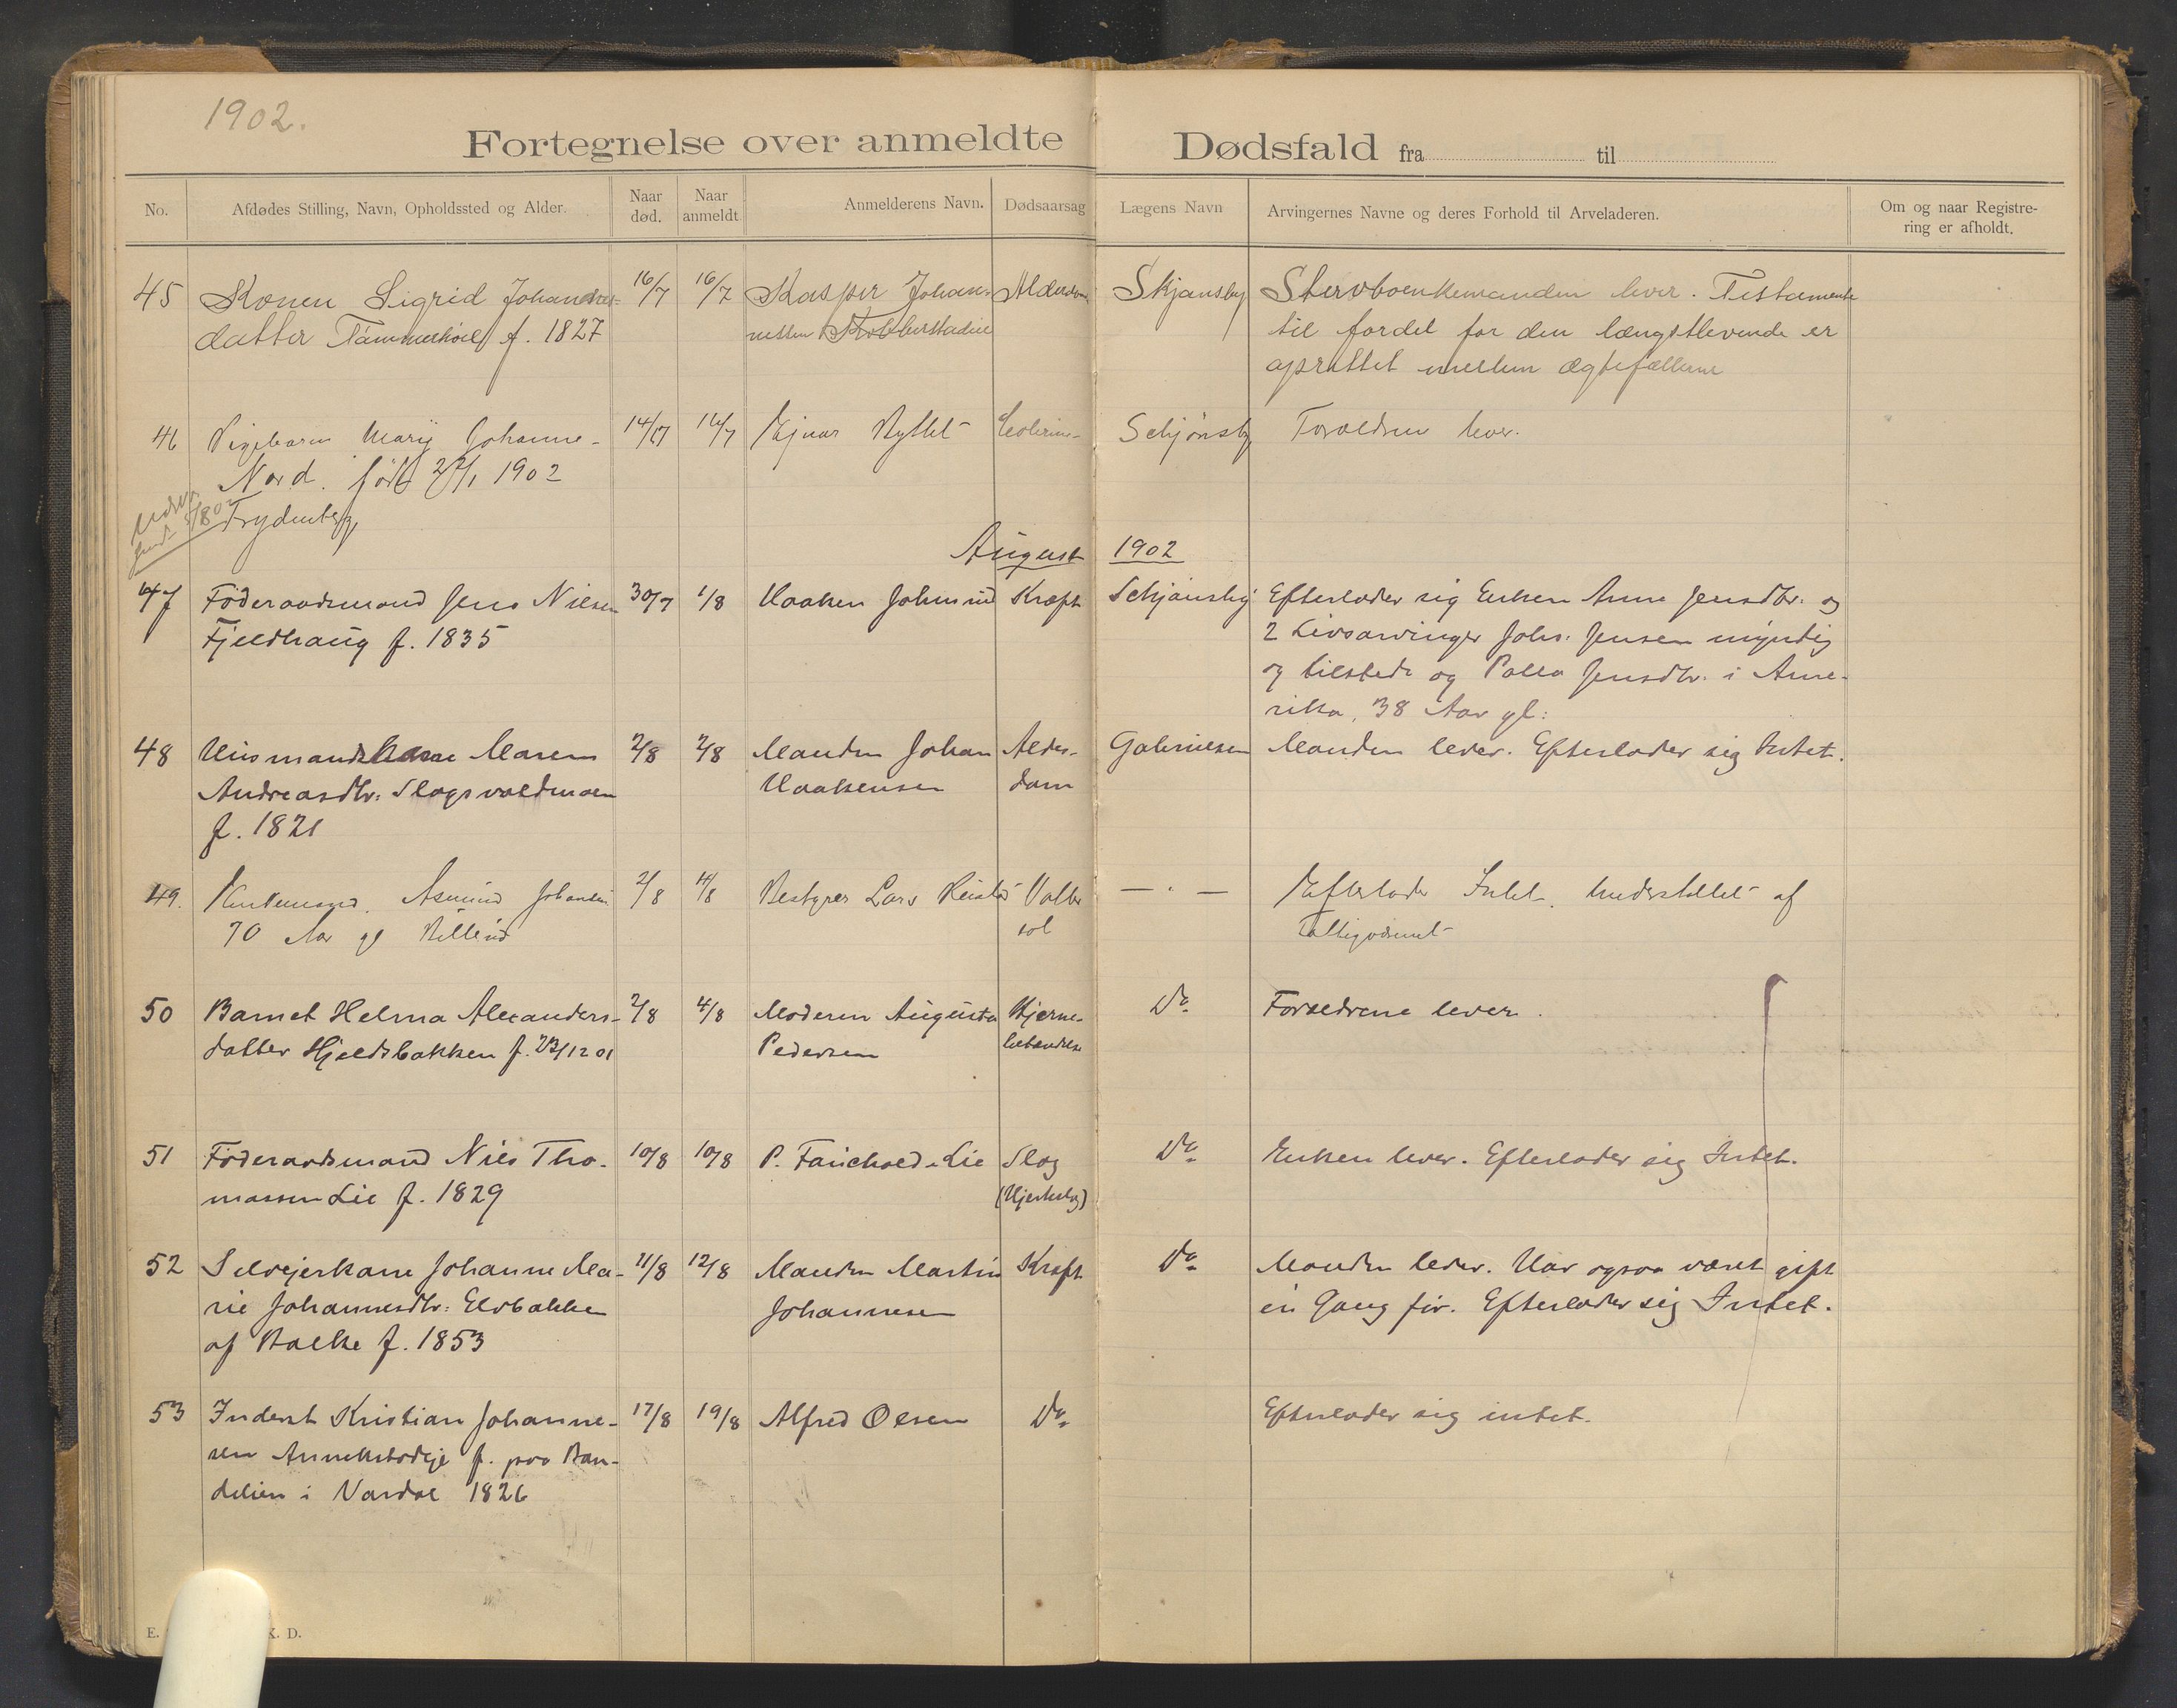 1902.
Fortegnelse over anmeldte Dødsfald fra til
No.
Afdødes Stilling, Navn, Opholdssted og Alder.
Naar død.
Naar anmeldt
Anmelderens Navn.
Dødsaarsag
Lægens Navn
Arvingernes Navne og deres Forhold til Arveladeren.
Om og naar Registre-
ring er afholdt.
45 Konen Sigrid Johannes- 16/7 16/7 Kasper Johan- Alderdom Skjønsby Stervboenkemanden lever. Testamente
datter f. 1827 nessen til fordel for den længstlevende er
oprettet mellem ægtefællerne
46 Pigebarn Marie Johanne 14/7 16/7 Ejnar Schjønsby Forældrene lever.
Nord. født 1902
Frydenberg
August 1902
47 Föderaadsmand Jens Nilsen 30/7 1/8 Haaken Johnsrud Kræft Schjønsby Efterlader sig Enken Anne Jensdtr. og
Fjeldhaug f. 1835 2 Livsarvinger Johs: Jensen myndig
og tilstede og Jensdtr. i Ame-
rika, 38 Aar gl:
48 Husmandskone Maren 2/8 2/8 Manden Johan Alder- Gabrielsen Manden lever. Efterlader sig Intet.
Andreasdtr: Slagsvoldmoen Haakensen dom
f. 1821
49. Asmund Johansen 2/8 4/8 Bestyrer Lars — " — Efterlader Intet. Understøttet af
70 Aar gl Fattigvæsenet
50 Barnet Helma Alexanders- 2/8 4/8 Moderen Augusta Hjerne- Do Forældrene lever.
datter Hjeldsbakken f. 23/12 01 Pedersen betændelse
51 Föderaadsmand Nils Tho- 10/8 10/8 P. Fauchald Lie Slag Do Enken lever. Efterlader sig Intet.
massen Lie f. 1829 (Hjerteslag)
52 Selvejerkone Johanne Ma- 11/8 12/8 Manden Martin Kræft Do Manden lever. Har ogsaa været gift
rie Johannesdtr: Elvbakken Johannesen en Gang før. Efterlader sig Intet.
af Balke f. 1853
53 Inderst Kristian Johanne- 17/8 19/8 Alfred Olsen Do Efterlader sig intet.
sen f. paa
i Vardal 1826
E.
K. D.